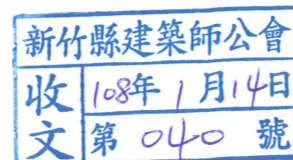 新竹縣建築師公會
收文
108年1月14日
第040號